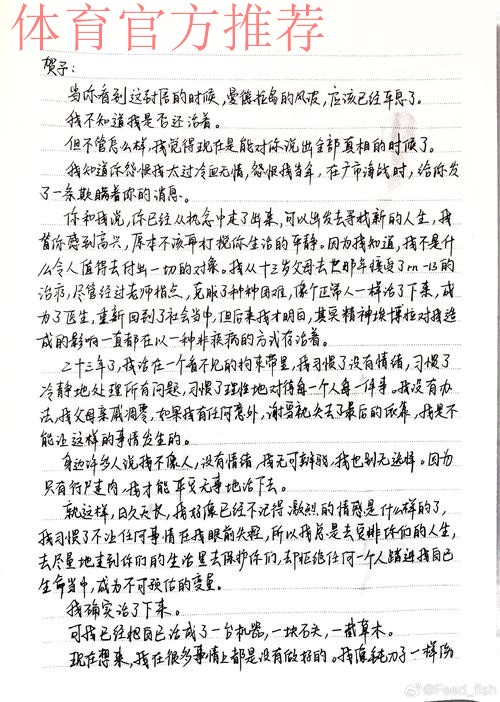 体育官方推荐
贺予:
当你看到这封信的时候,曼德拉岛的风波,应该已经平息了。
我不知道我是否还活着。
但不管怎么样,我觉得现在是能对你说出全部真相的时候了。
我知道你怨恨我太过冷血无情,怨恨我当年,在广市海战时,给你发
了一条欺瞒着你的消息。
你和我说,你已经从执念中走了出来,可以出发去寻找新的人生,我
替你感到高兴,原本不该再打搅你生活的平静。因为我知道,我不是什
么令人值得去付出一切的对象。我从十三岁父母去世那年接受了rn-13的
治疗,尽管经过老师指点,克服了种种困难,像个正常人一样活了下来,成
为了医生,重新回到了社会当中,但后来我才明白,其实精神埃博拉对我造
成的影响一直都在以一种非疾病的方式存活着。
二十三年了,我活在一个看不见的拘束带里,我习惯了没有情绪,习惯了
冷静地处理所有问题,习惯了理性地对待每一个人每一件事。我没有办
法,我父母亲戚凋零,如果我有任何意外,谢雪就失去了最后的依靠,我是不
能让这样的事情发生的。
身边许多人说我不像人,没有情绪,我无可辩驳,我也别无选择。因为
只有行尸走肉,我才能平安无事地活下去。
就这样,日久天长,我好像已经不记得激烈的情感是什么样的了,
我习惯了不让任何事情在我眼前失控,所以我总是去安排你们的人生,
去尽量地走到你们的生活里去保护你们,却拒绝任何一个人踏进我自己
生命当中,成为不可预估的变量。
我确实活了下来。
可我已经把自己活成了一台机器,一块石头,一截草木。
现在想来,我在很多事情上都是没有做好的。我像钝刀子一样伤
@Feed_fish